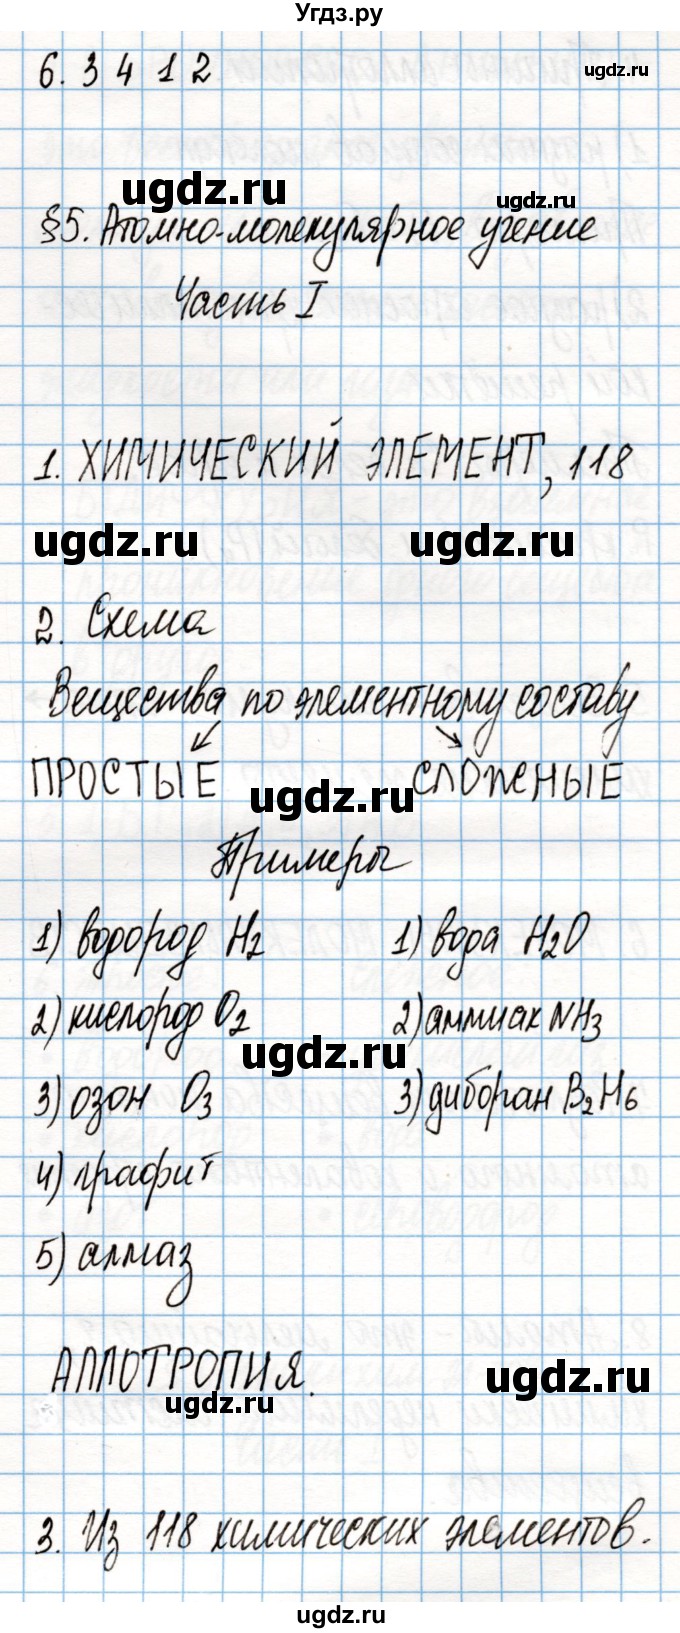 Угдз.ру
6. 3 4 1 2
ugdz.ru
ugdz.ru
ugdz.ru
§5. Атомно-молекулярное учение
Часть I
1. ХИМИЧЕСКИЙ ЭЛЕМЕНТ, 118
ugdz.ru ugdz.ru
2. Схема
Вещества по элементному составу
ПРОСТЫЕ СЛОЖНЫЕ
ugdz.ru
Примеры
1) водород H2 1) вода H2O
2) кислород O2 2) аммиак NH3
ugdz.ru
3) озон O3 3) диборан B2H6
4) графит
5) алмаз
АЛЛОТРОПИЯ.
ugdz.ru
ugdz.ru
3. Из 118 химических элементов.
ugdz.ru